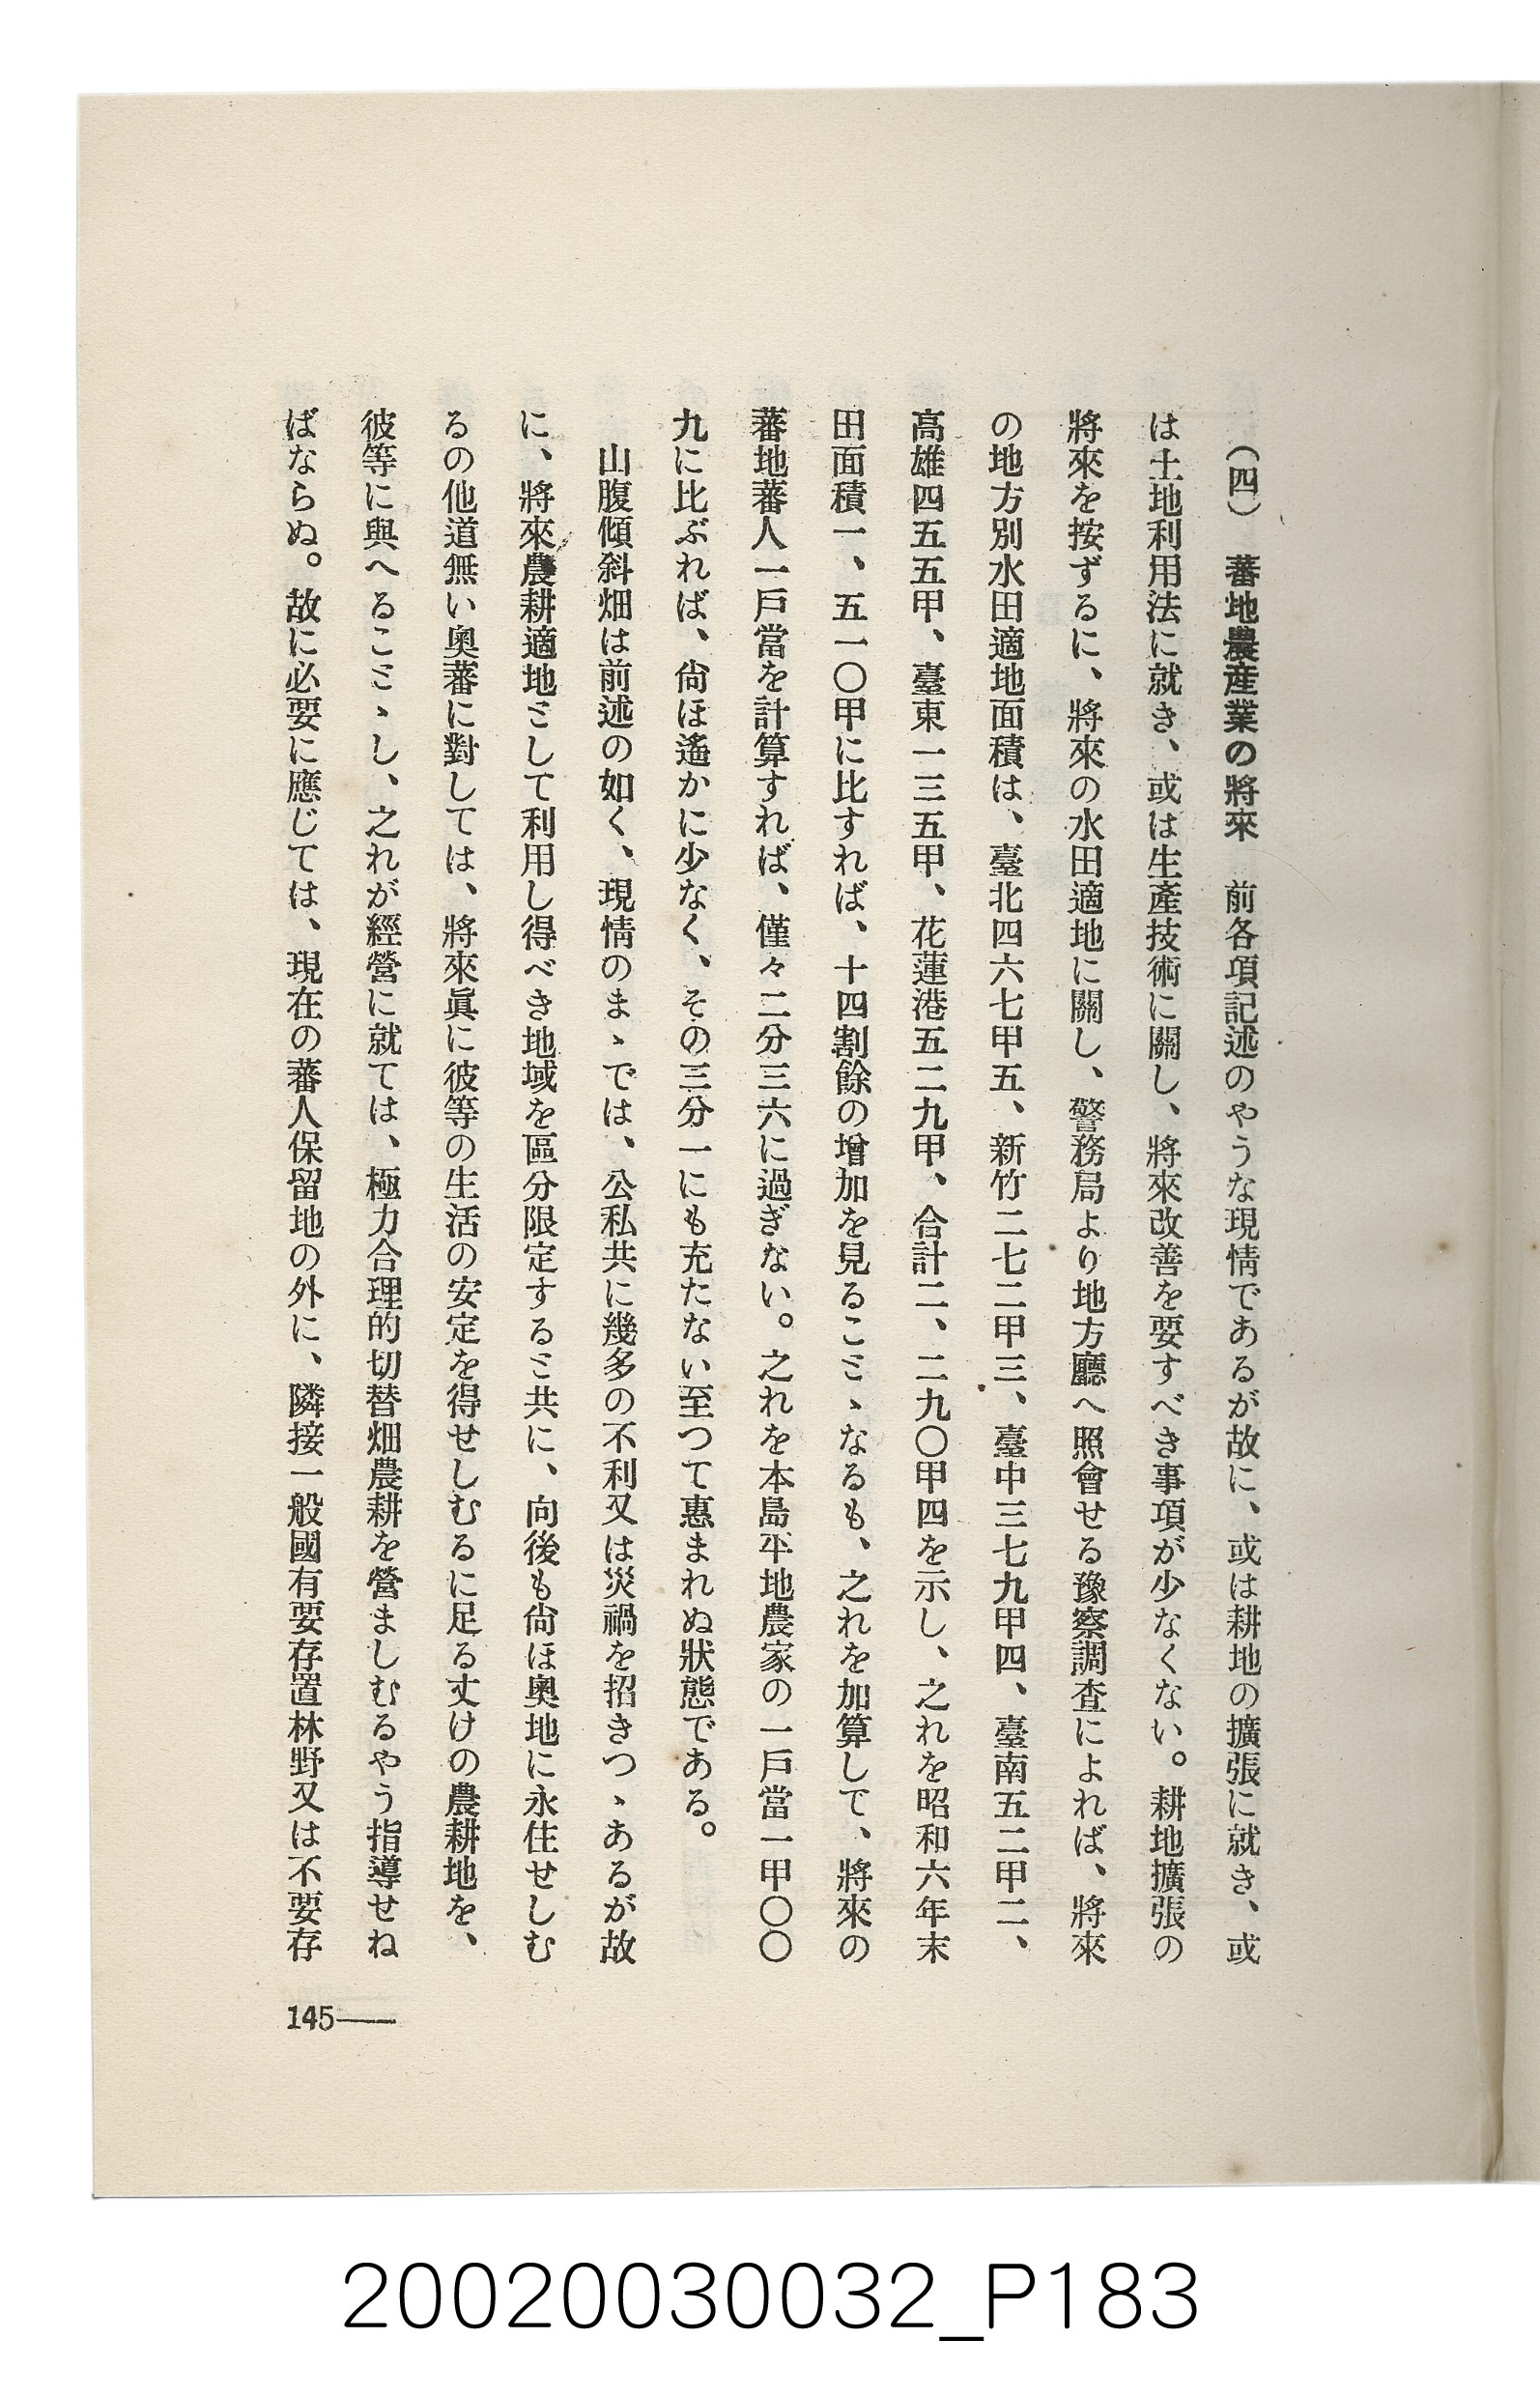 (四)　蕃地農産業の將來　前各項記述のやうな現情であるが故に、或は耕地の擴張に就き、或
は土地利用法に就き、或は生産技術に關し、將來改善を要すべき事項が少なくない。耕地擴張の
將來を按ずるに、將來の水田適地に關し、警務局より地方廳へ照會せる豫察調査によれば、將來
の地方別水田適地面積は、臺北四六七甲五、新竹二七二甲三、臺中三七九甲四、臺南五二甲二、
高雄四五五甲、臺東一三五甲、花蓮港五二九甲、合計二、二九〇甲四を示し、之れを昭和六年末
田面積一、五一〇甲に比すれば、十四割餘の增加を見るこミゝなるも、之れを加算して、將來の
蕃地蕃人一戶當を計算すれば、僅々二分三六に過ぎない。之れを本島平地農家の一戶當一甲〇〇
九に比ぶれば、尙ほ遙かに少なく、その三分一にも充たない至つて惠まれぬ狀態である。
山腹傾斜畑は前述の如く、現情のまゝでは、公私共に幾多の不利又は災禍を招きつゝあるが故
に、將來農耕適地ミして利用し得べき地域を區分限定するミ共に、向後も尙ほ奧地に永住せしむ
るの他道無い奧蕃に對しては、將來眞に彼等の生活の安定を得せしむるに足る丈けの農耕地を、
彼等に與へるこミゝし、之れが經營に就ては、極力合理的切替畑農耕を營ましむるやう指導せね
ばならぬ。故に必要に應じては、現在の蕃人保留地の外に、隣接一般國有要存置林野又は不要存
145——
20020030032_P183